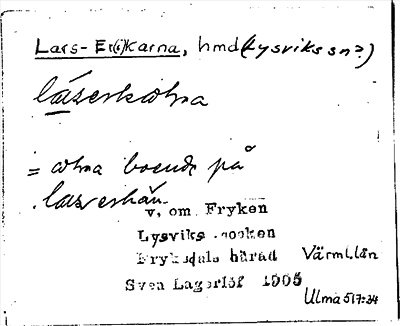 Lars-Er(i)karna, hmd (Lysviks sn?)
= boende på
v. om Fryken
Lysviks socken
Fryksdals härad Värml.län
Sven Lagerlöf 1905
Ulma 517:34